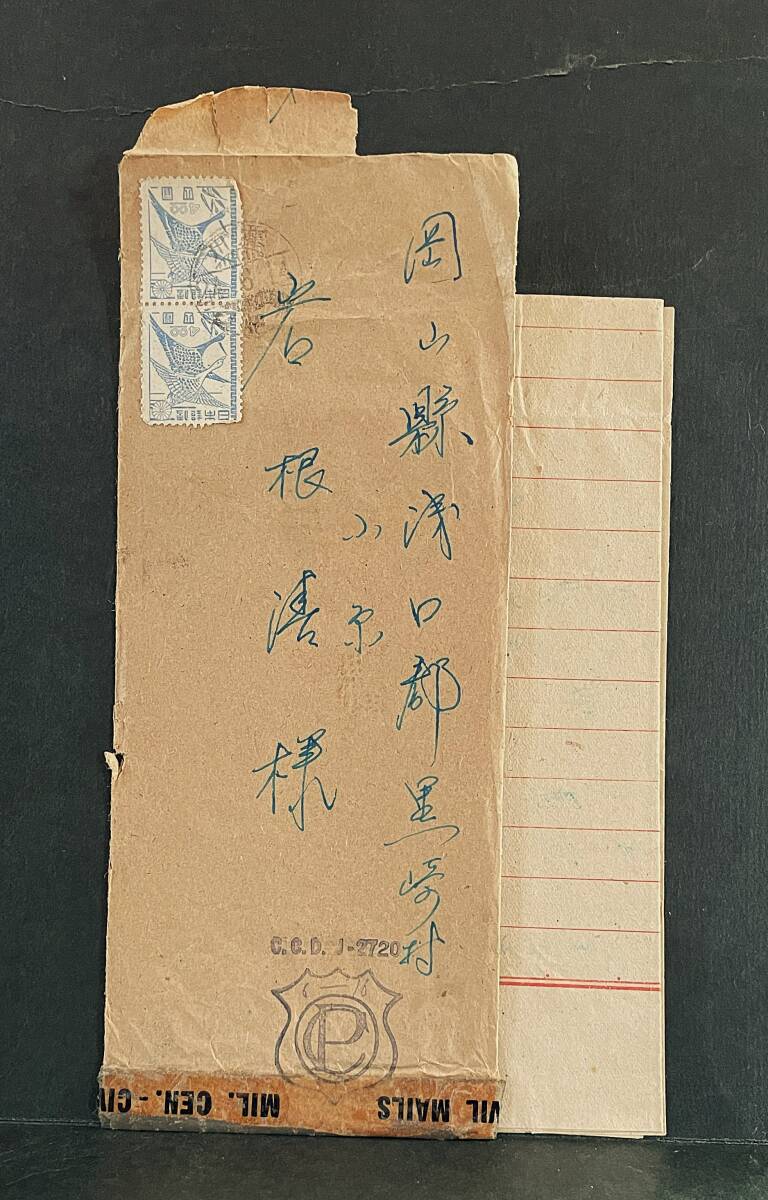 岡山縣浅口郡黒崎村
小原
岩根清様
日本郵便
4.00
日本郵便
4.00
C.C.D. J-2720
CP
MIL. CEN. - CIVIL MAILS